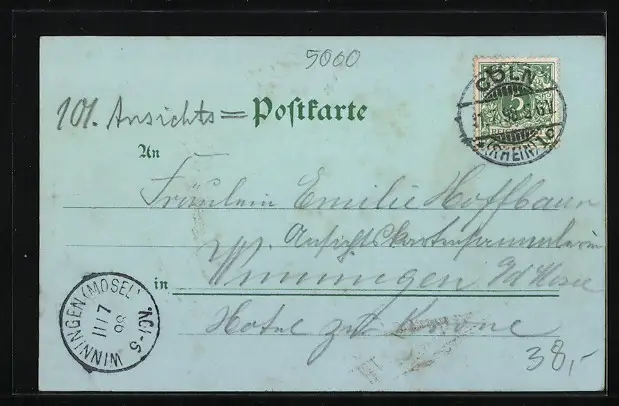 5000
101. Ansichts=Postkarte
CÖLN
5
(RHEIN)
An
Fräulein Emilie Hoffbaur
Ansichtskartensammlerin
in Winningen a/d Mosel
Hotel zur Krone
WINNINGEN (MOSEL)
11/7
98
38,-